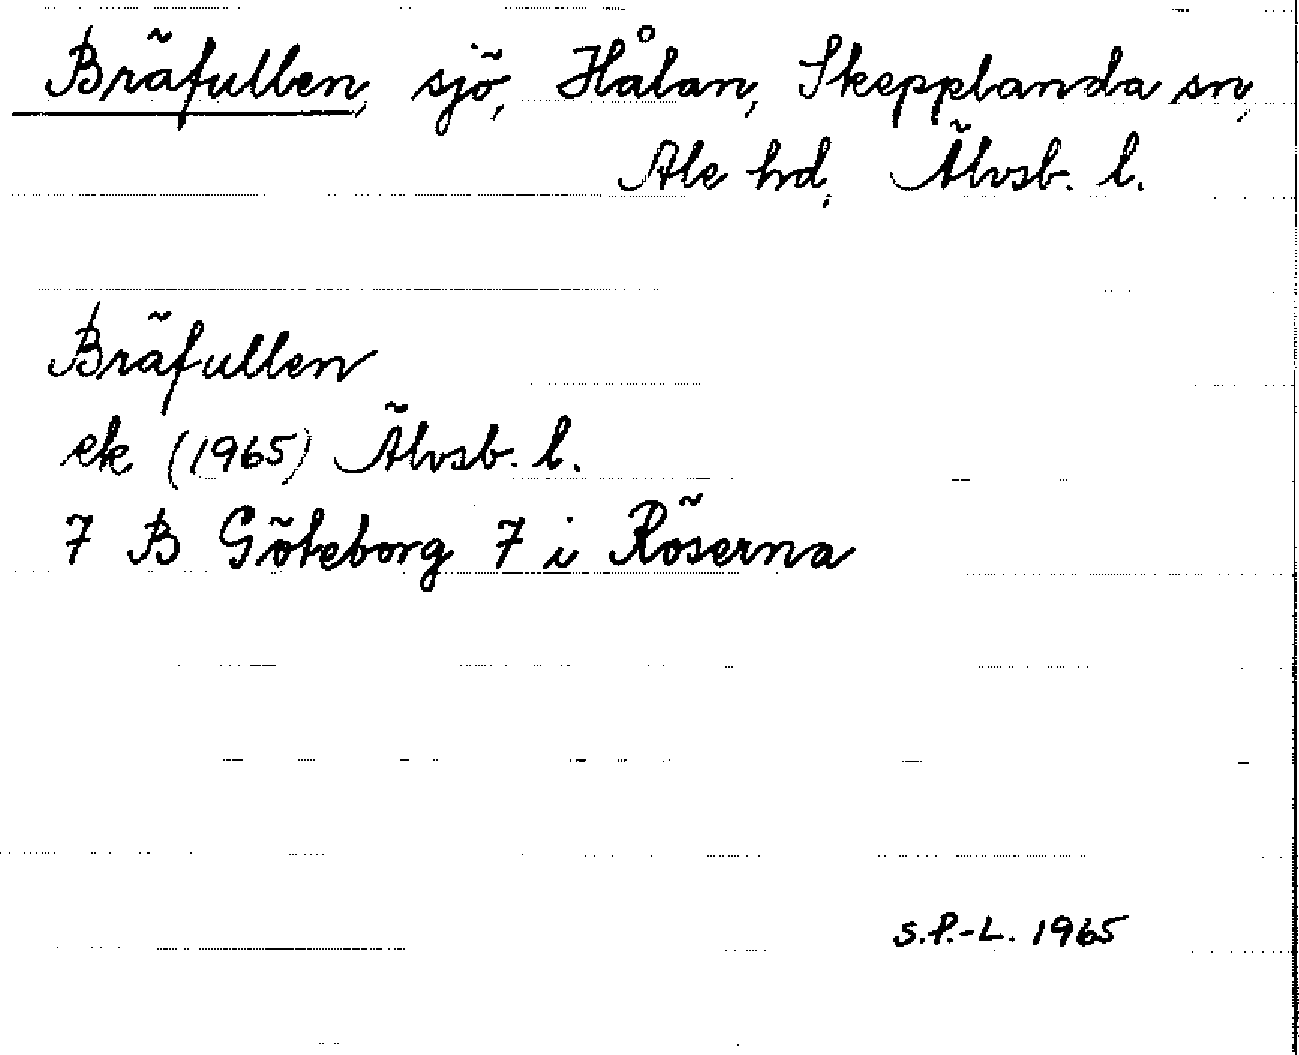 Bräfullen, sjö, Hålan, Skepplanda sn,
Ale hd, Älvsb. l.
Bräfullen
ek (1965) Älvsb. l.
7 B Göteborg 7 i Röserna
S.P.-L. 1965